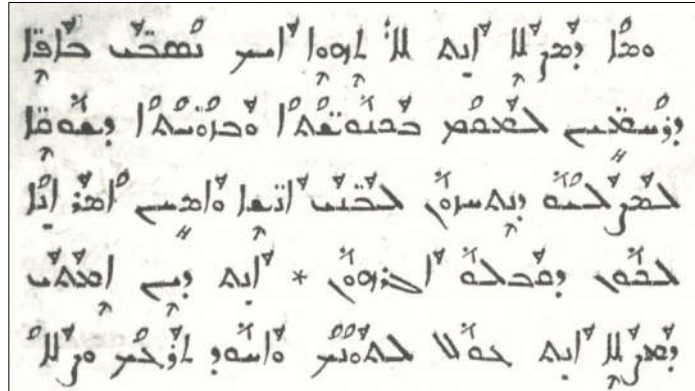 ܘܡܐ ܕܡܨܠܐ ܐܢܬ ܠܐ ܬܗܘܐ ܐܝܟ ܢܣܒ̈ܝ ܒܐܦ̈ܐ
ܕܪܚܡܝܢ ܠܡܩܡ ܒܟܢܘܫ̈ܬܐ ܘܒܙܘ̈ܝܬܐ ܕܫܘ̈ܩܐ
ܠܡܨܠܝܘ ܕܢܬܚܙܘܢ ܠܒܢ̈ܝ ܐܢܫ̈ܐ ܘܐܡܝܢ ܐܡܪ ܐܢܐ
ܠܟܘܢ ܕܩܒܠܘ ܐܓܪܗܘܢ * ܐܢܬ ܕܝܢ ܐܡܬܝ
ܕܡܨܠܐ ܐܢܬ ܥܘܠ ܠܬܘܢܟ ܘܐܚܘܕ ܬܪܥܟ ܘܨܠܐ